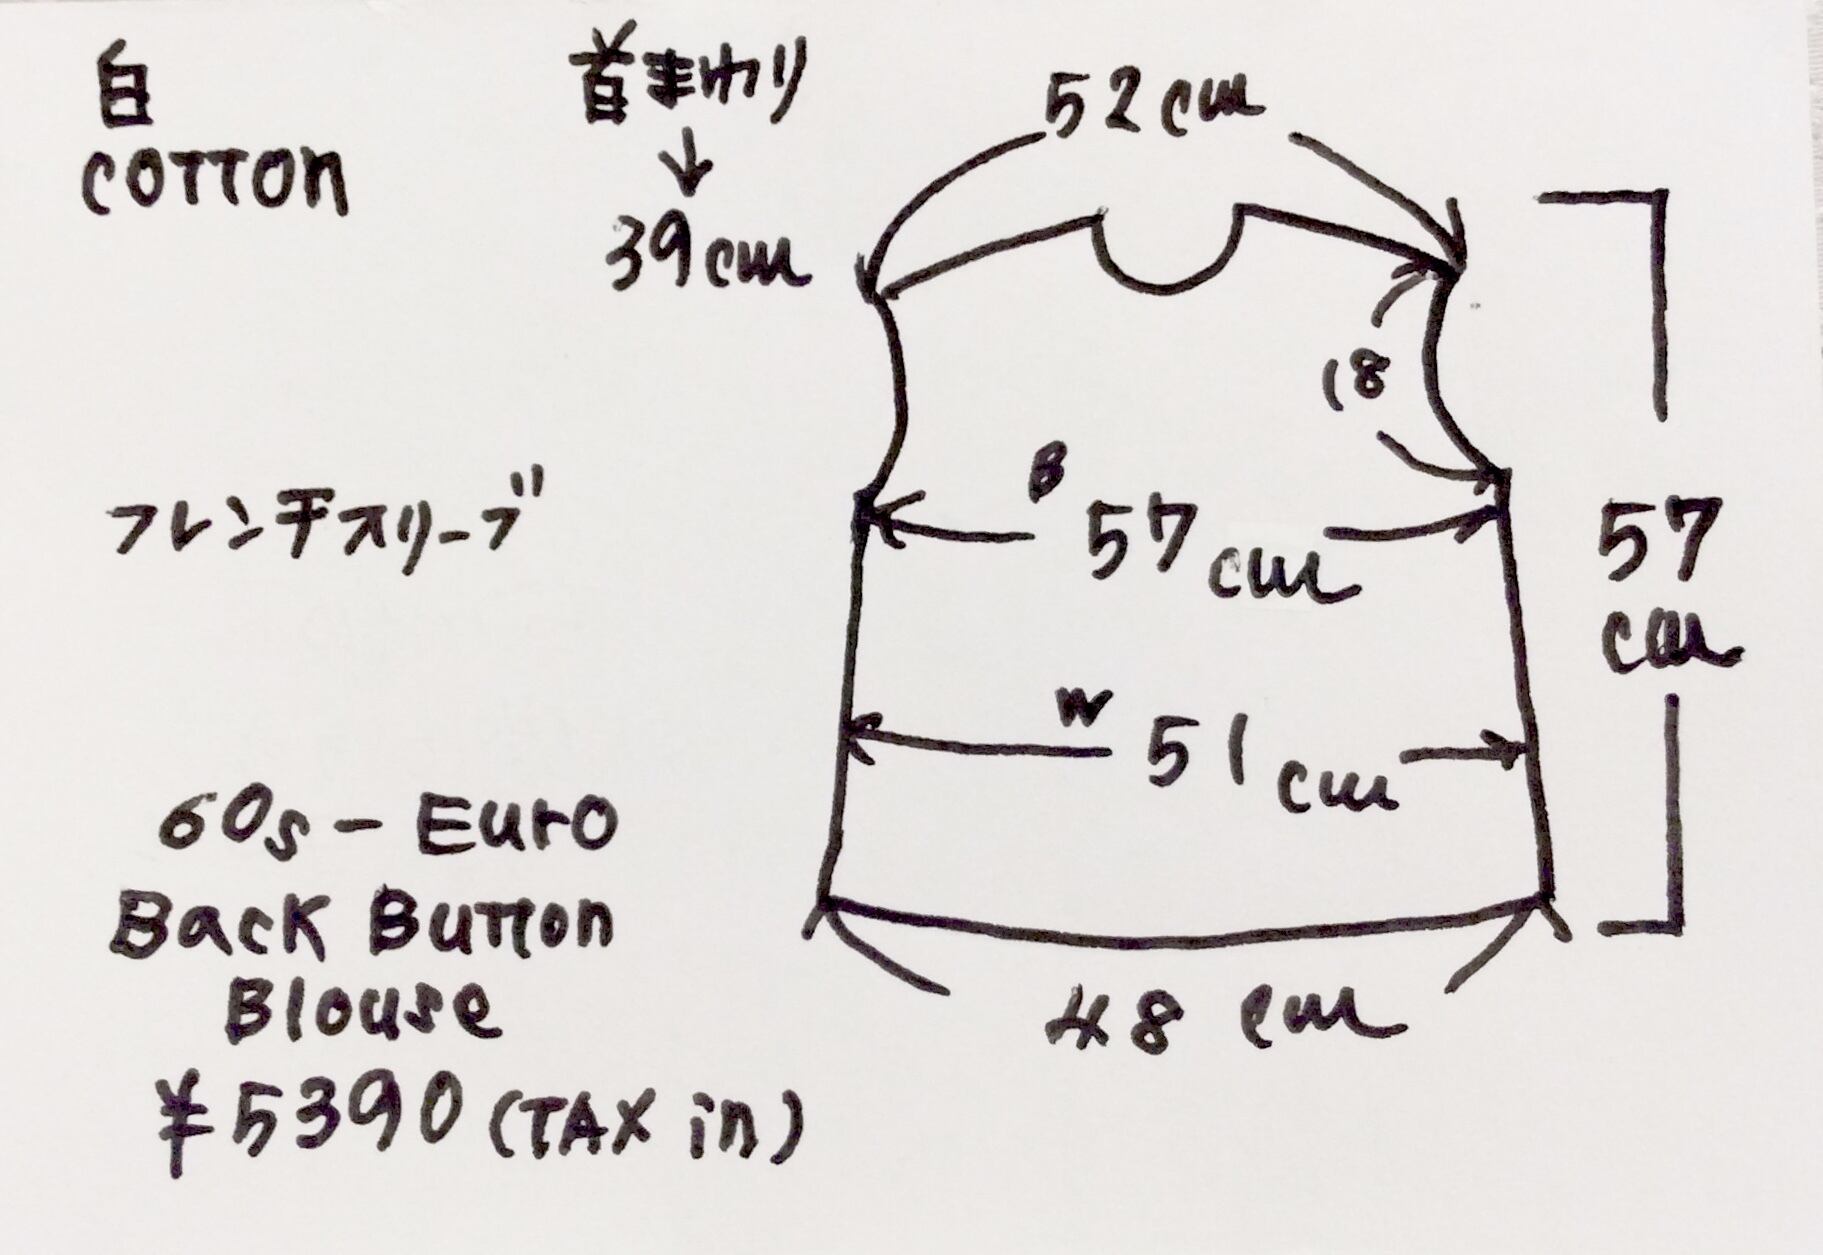 白
COTTON
首まわり
↓
39cm
52cm
18
フレンチスリーブ
B
57cm
57
cm
W
51cm
60s - Euro
Back Button
Blouse
¥5390 (TAX in)
48cm